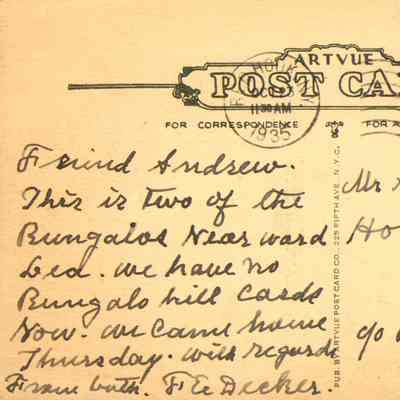 ARTVUE
POST CA
FOR CORRESPONDENCE
FOR A
OCT
11 30 AM
1935
Freind Andrew.
This is two of the
Bungalos Near ward
Led. we have no
Bungalo hill Cards
Now. we came home
Thursday. with regards
From both. F E Decker.
Mr
Ho
go
PUB. BY ARTVUE POST CARD CO., 225 FIFTH AVE., N.Y.C.